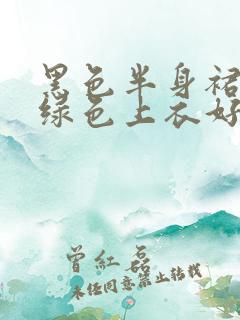 黑色半身裙
绿色上衣好
曾紅磊
未经同意禁止转载